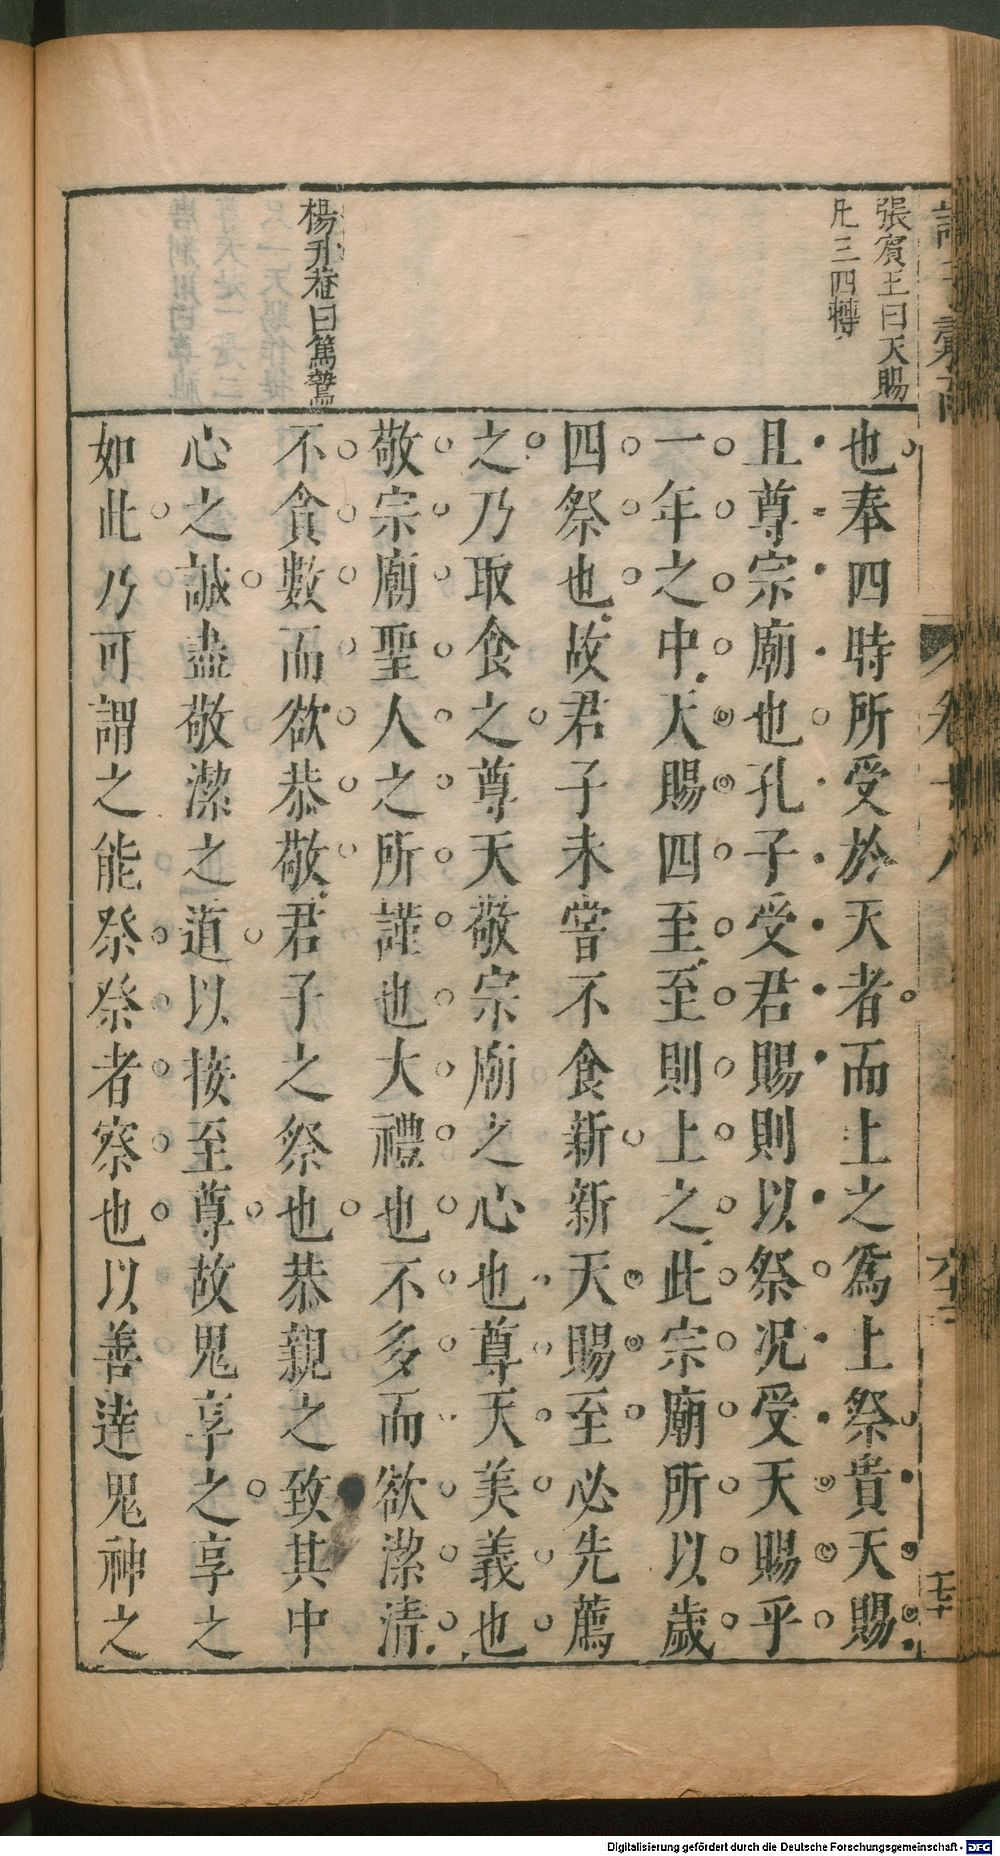 張賓王曰天賜
凡三四轉
楊升菴曰篤鷙
也奉四時所受於天者而上之爲上祭貴天賜
且尊宗廟也孔子受君賜則以祭况受天賜乎
一年之中天賜四至至則上之此宗廟所以歲
四祭也故君子未嘗不食新新天賜至必先薦
之乃取食之尊天敬宗廟之心也尊天美義也
敬宗廟聖人之所謹也大禮也不多而欲潔清
不貪數而欲恭敬君子之祭也恭親之致其中
心之誠盡敬潔之道以接至尊故鬼享之享之
如此乃可謂之能祭祭者察也以善逹鬼神之
卷十八
六十三
七十
Digitalisierung gefördert durch die Deutsche Forschungsgemeinschaft - DFG